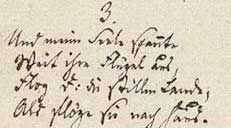 3.
Und meine Seele spannte
Weit ihre Flügel aus,
Flog d: die stillen Lande,
Als flöge sie nach Haus.